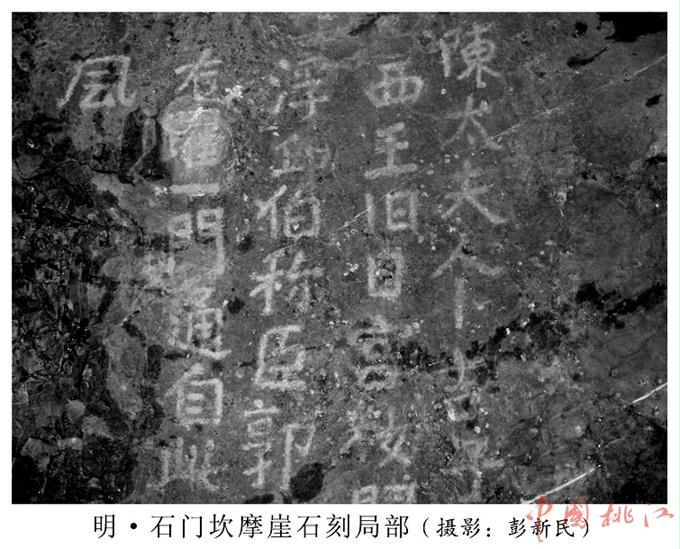 陳太夫
西王旧日宫
浮丘伯称臣郭
右一門通自此
风
明·石门坎摩崖石刻局部（摄影：彭新民）
中国桃江